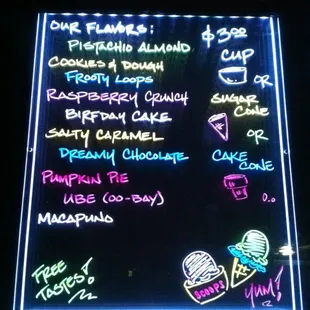 OUR FLAVORS:
PISTACHIO ALMOND
COOKIES & DOUGH
FROOTY LOOPS
RASPBERRY CRUNCH
BIRFDAY CAKE
SALTY CARAMEL
DREAMY CHOCOLATE
PUMPKIN PIE
UBE (OO-BAY)
MACAPUNO
$3.00
CUP
OR
SUGAR
CONE
OR
CAKE
CONE
FREE
TASTES!
SCOOPS
YUM!